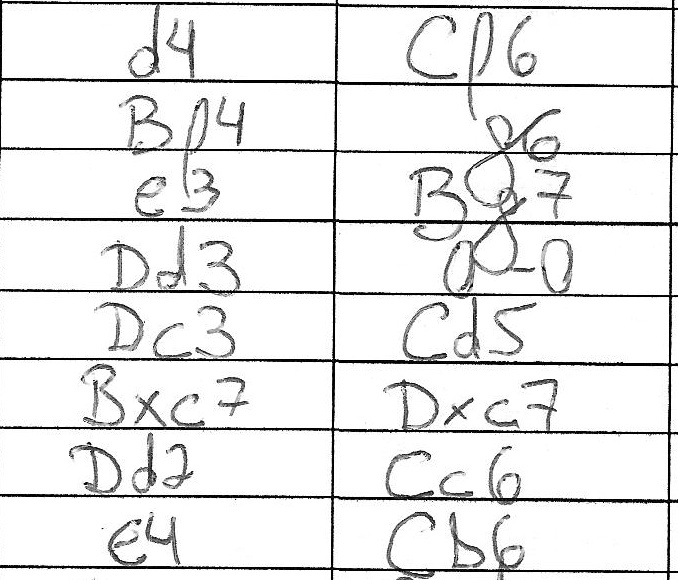 d4 Cf6
Bf4 g6
e3 Bg7
Dd3 0-0
Dc3 Cd5
Bxc7 Dxc7
Dd2 Cc6
e4 Cb6